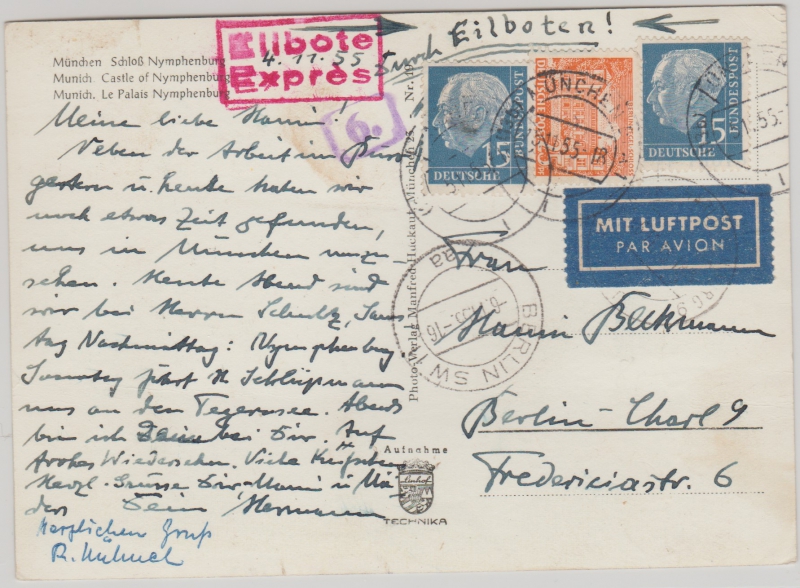 München Schloß Nymphenburg
Munich Castle of Nymphenburg
Munich. Le Palais Nymphenburg
Eilbote
Exprès
4. 11. 55
Durch Eilboten!
6.
Nr. 19
Meine liebe Hanni!
Neben der Arbeit im Büro
gestern u. heute haben wir
noch etwas Zeit gefunden,
uns in München umzu-
sehen. Heute Abend sind
wir bei Herrn Schultz, Sams
tag Nachmittag: Nymphenburg
Sonntag fährt H Schlüpmann
uns an den Tegernsee. Abends
bin ich bei Dir. Auf
frohes Wiedersehen. Viele
Herzl. Grüsse Dir
Dein Hermann
Herzlichen Gruß
R.
Photo-Verlag Manfred Huckauf, München 25
15
DEUTSCHE
BUNDESPOST
15
DEUTSCHE
BUNDESPOST
MÜNCHEN
MIT LUFTPOST
PAR AVION
BERLIN SW
Frau
Hanni Beckmann
Berlin-Charl 9
Fredericiastr. 6
Aufnahme
Linhof
TECHNIKA